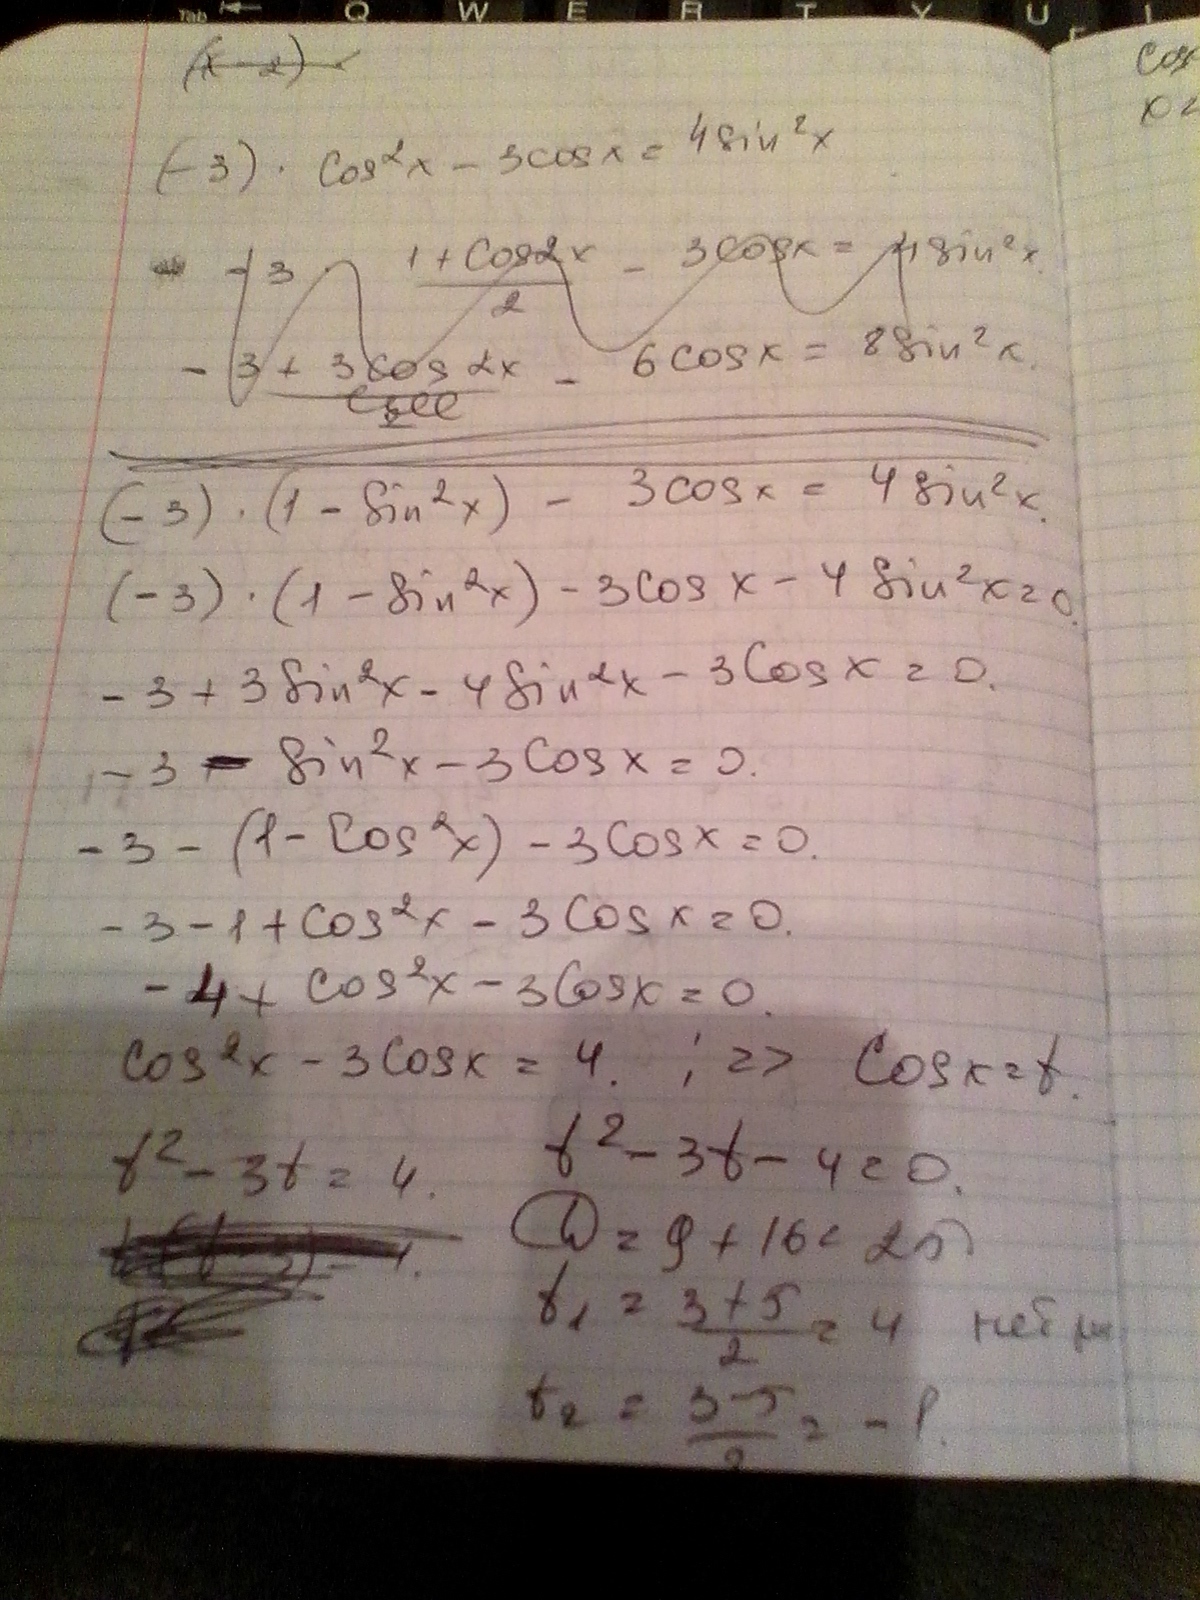 Tab Q W E R T Y U I
(x-2)
cos
x =
(-3) · cos²x - 3cosx = 4sin²x
-3 1+cos2x/2 - 3cosx = 4sin²x
-3 + 3cos2x - 6cosx = 8sin²x.
(-3) · (1 - sin²x) - 3cosx = 4sin²x.
(-3) · (1 - sin²x) - 3cosx - 4sin²x = 0.
-3 + 3sin²x - 4sin²x - 3cosx = 0.
-3 - sin²x - 3cosx = 0.
-3 - (1 - cos²x) - 3cosx = 0.
-3 - 1 + cos²x - 3cosx = 0.
-4 + cos²x - 3cosx = 0.
cos²x - 3cosx = 4. ; => cosx = t.
t² - 3t = 4. t² - 3t - 4 = 0.
D = 9 + 16 = 25
t₁ = 3+5/2 = 4 нет
t₂ = 3-5/2 = -1.